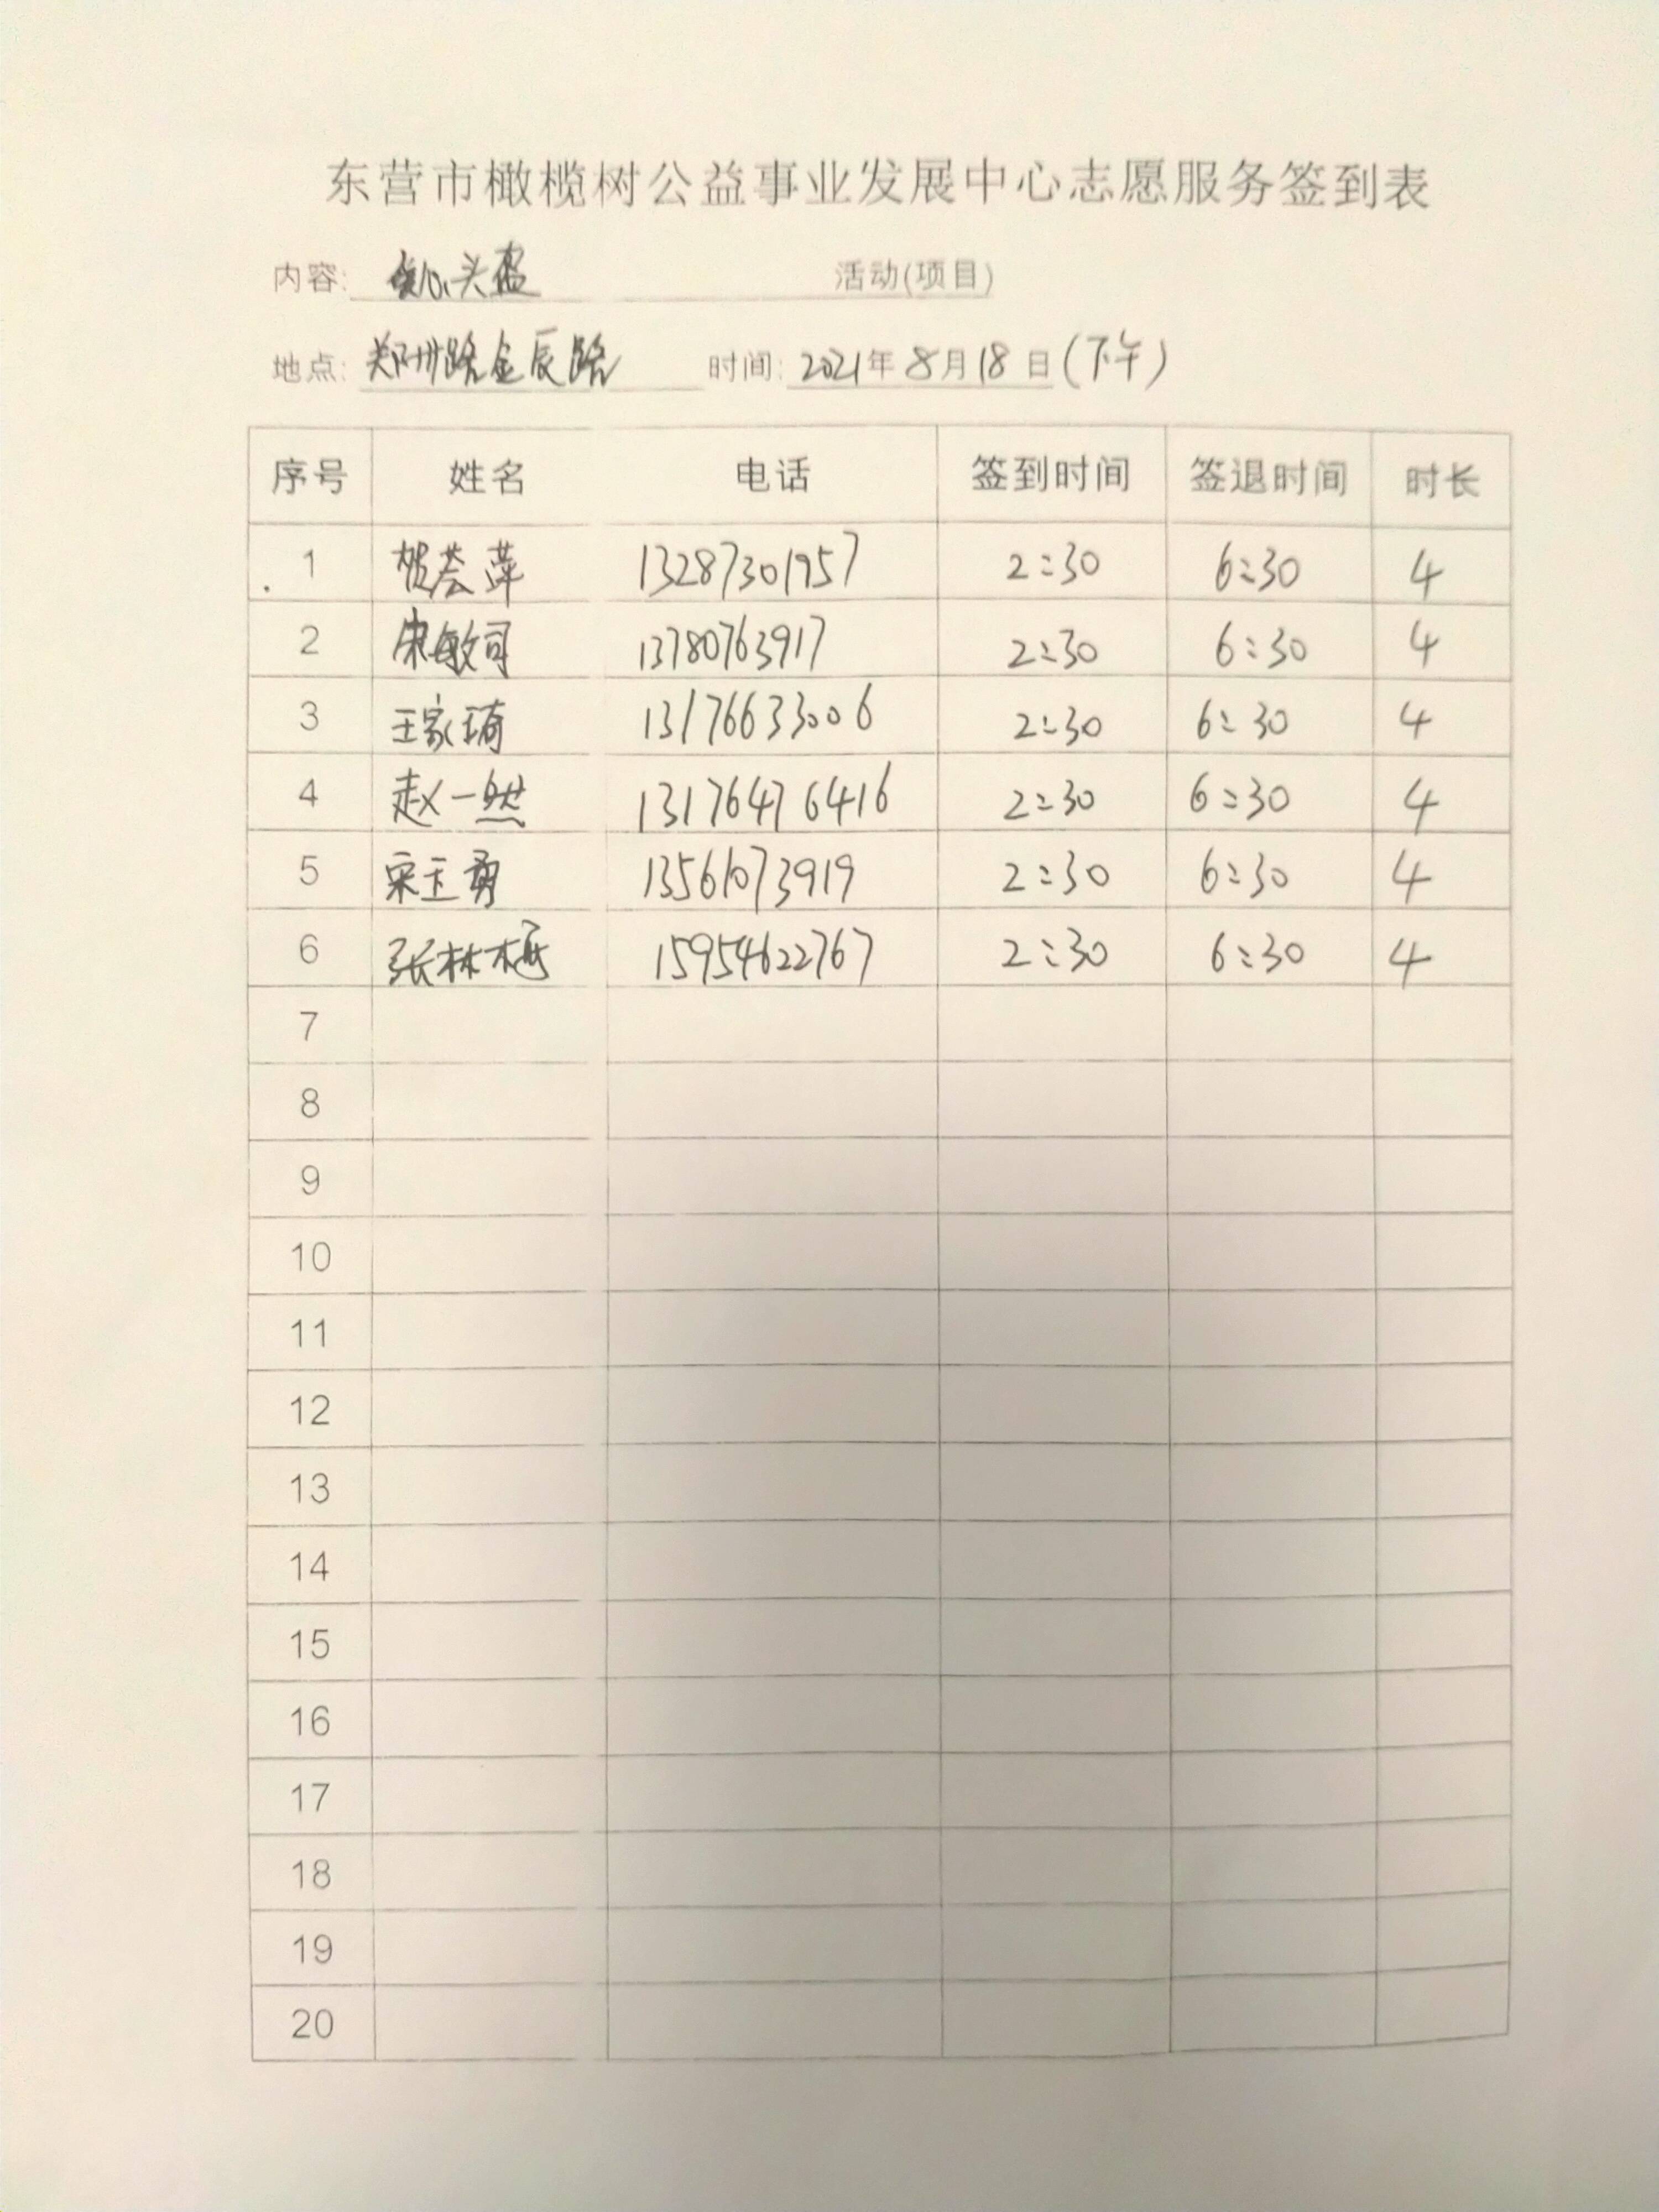 东营市橄榄树公益事业发展中心志愿服务签到表
内容: 头盔 活动(项目)
地点: 郑州路金辰路 时间: 2021年8月18日(下午)
序号 姓名 电话 签到时间 签退时间 时长
1 贺荟萍 13287301957 2:30 6:30 4
2 宋敏司 13780763917 2:30 6:30 4
3 王家琦 13176633006 2:30 6:30 4
4 赵一然 13176476416 2:30 6:30 4
5 宋玉勇 13561073919 2:30 6:30 4
6 张林梅 15954622767 2:30 6:30 4
7
8
9
10
11
12
13
14
15
16
17
18
19
20